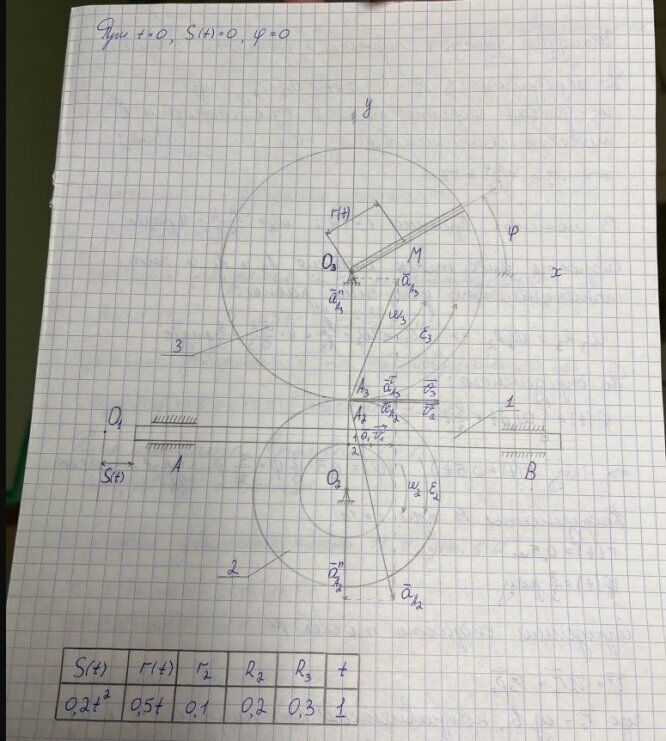 При t=0, S(t)=0, φ=0
y
r(t)
φ
M
O₃
x
ā_A₃
āⁿ_A₃
ω₃
ε₃
3
A₃ ā^τ_A₃ v̄₃
O₁
A₂ ā^τ_A₂ v̄₂
1
ā₁ v̄₁
A
B
S(t)
O₂
ω₂ ε₂
2
āⁿ_A₂
ā_A₂
S(t) r(t) r₂ R₂ R₃ t
0,2t² 0,5t 0,1 0,2 0,3 1